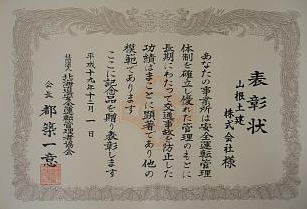 表彰状
山根土建
株式会社 様
あなたの事業所は安全運転管理
体制を確立し優れた管理のもとに
長期にわたって交通事故を防止した
功績はまことに顕著であり他の
模範であります
ここに記念品を贈り表彰します
平成十九年十二月一日
社団法人 北海道安全運転管理者協会
会長 都築一意